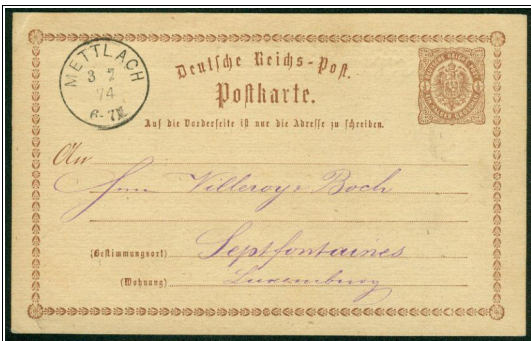 METTLACH
3 7
74
6-7N
Deutsche Reichs-Post.
Postkarte.
Auf die Vorderseite ist nur die Adresse zu schreiben.
An
Herrn Villeroy & Boch
(Bestimmungsort) Septfontaines
(Wohnung) Luxemburg